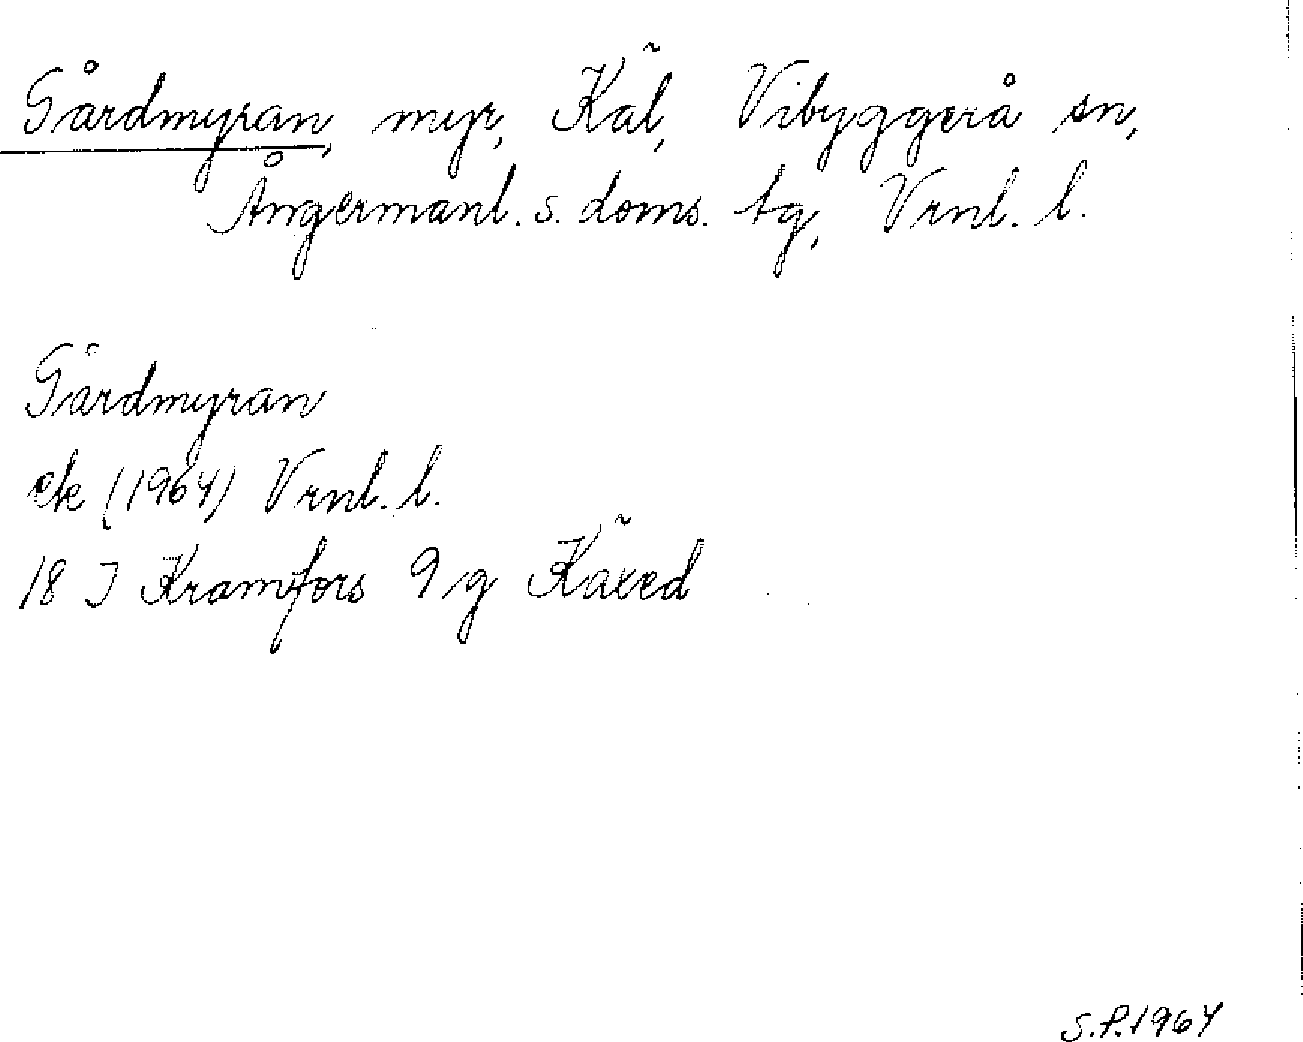 Gårdmyran, myr, Käl, Vibyggerå sn,
Ångermanl. s. doms. tg, Vrnl. l.
Gårdmyran
ek (1964) Vrnl. l.
18 J Kramfors 9 g Käxed
S.P. 1964